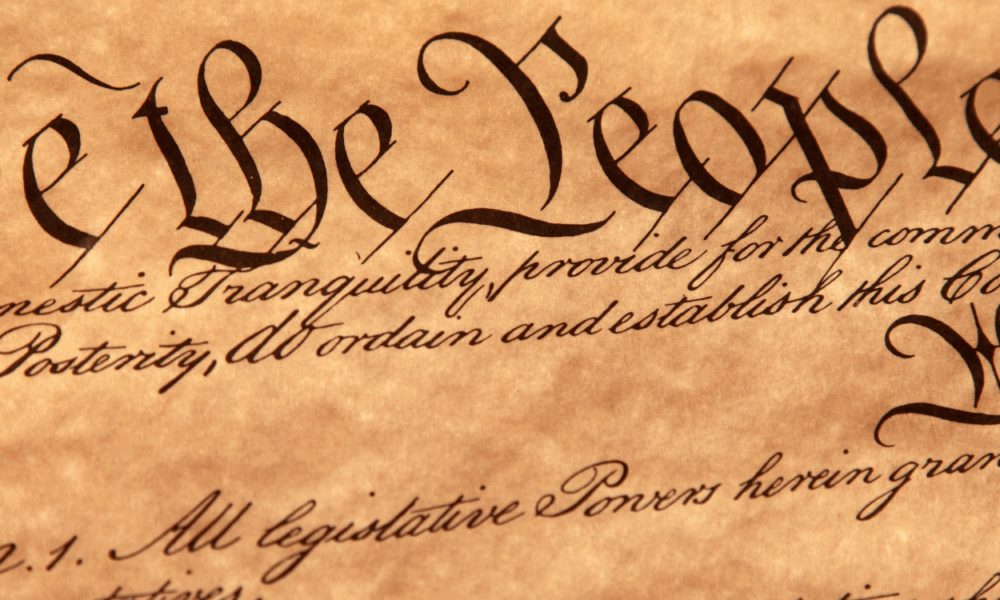 e the People
mestic Tranquility, provide for the comm
Posterity, do ordain and establish this Co
n. 1. All legislative Powers herein gran
tatives.